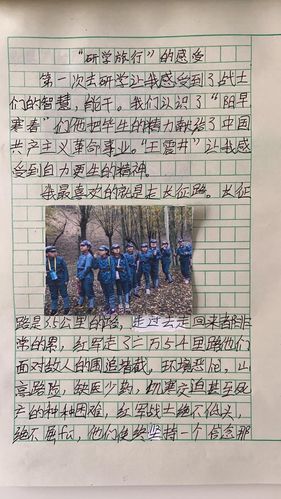 “研学旅行”的感受
第一次去研学让我感受到了战士
们的智慧,能干。我们认识了“阳早,
寒春”们他把毕生的精力献给了中国
共产主义革命事业。“王震井”让我感
受到自力更生的精神。
我最喜欢的就是走长征路。长征
路是3.5公里的路,走过去走回来都非
常的累,红军走了二万五千里路他们
面对敌人的围追堵截,环境恶劣,山
高路险,缺医少药,饥寒交迫甚至死
亡的种种困难,红军战士绝不低头,
绝不屈fu,他们使终坚持一个信念那